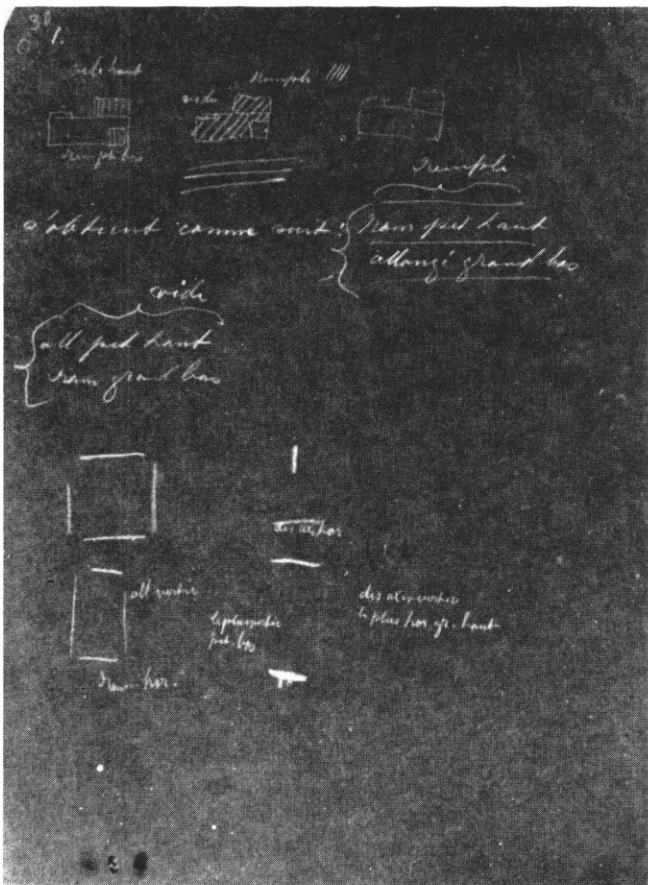 38
1.
vide haut
rempli
vide
rempli bas
rempli
s'obtient comme suit:
ram petit haut
allongé grand bas
vide
all petit haut
ram grand bas
all vertic
le plus petit
pet. bas
ram hor.
le plus hor gr. haut